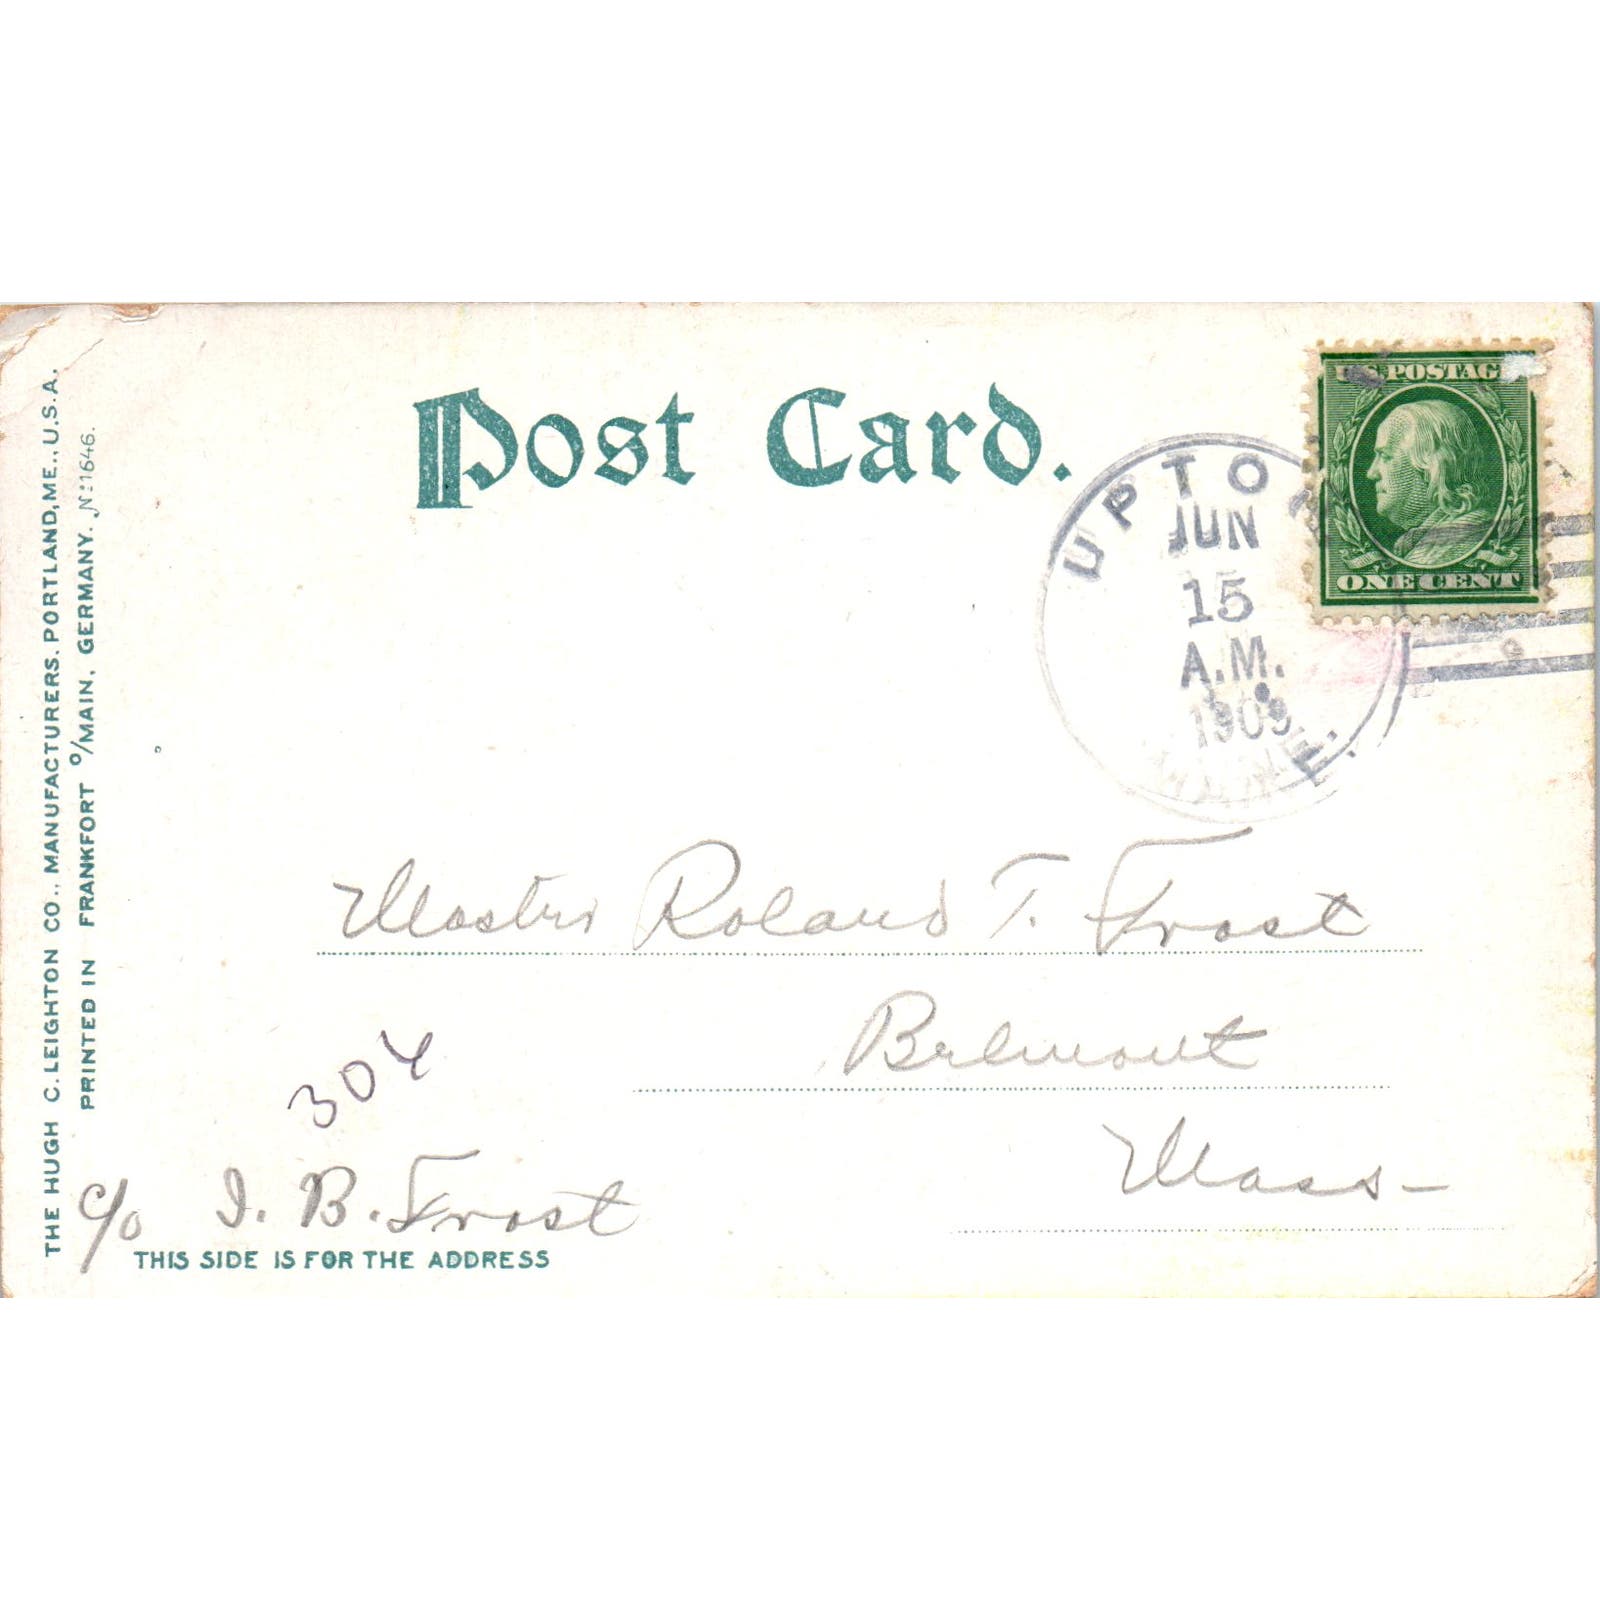 Post Card.
U.S. POSTAG
ONE CENT
UPTON
JUN
15
A.M.
1909
MAINE.
Master Roland T. Frost
Belmont
Mass-
304
c/o I. B. Frost
THIS SIDE IS FOR THE ADDRESS
THE HUGH C. LEIGHTON CO., MANUFACTURERS, PORTLAND, ME., U.S.A.
PRINTED IN FRANKFORT o/MAIN, GERMANY. No 1646.